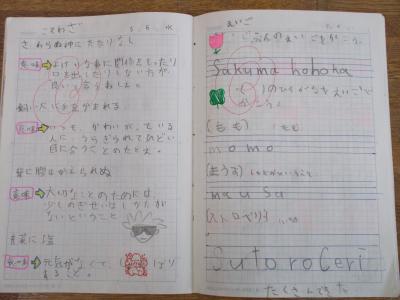 ことわざ
さわらぬ神にたたりなし
意味
よけいな事に関係をもったり
口を出したりしない方が
良いと言うおしえ。
飼い犬に手をかまれる
意味
いつも、かわいがっている
人に、うらぎられてひどい
目に合うことのたとえ。
背に腹はかえられぬ
意味
大切なことのためには
少しのぎせいはしかたが
ないということ
青菜に塩
意味
元気がなくて、
すること。
えいご
じぶんのえいごをかこう。
Sakuma hohoha
のひらがなをえいごで
かこう
(もも)
momo
(まうす)
mausa
(ストロベリー)
Sutoroberi
たくさんできた